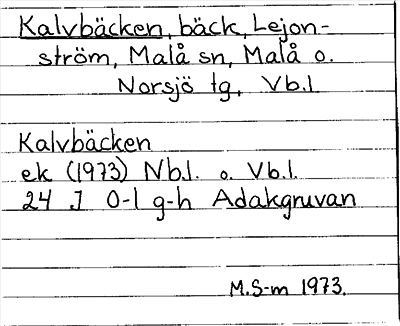 Kalvbäcken, bäck, Lejon-
ström, Malå sn, Malå o.
Norsjö tg, Vb.l
Kalvbäcken
ek (1973) Nb.l. o. Vb.l.
24 J 0-1 g-h Adakgruvan
M.S-m 1973.